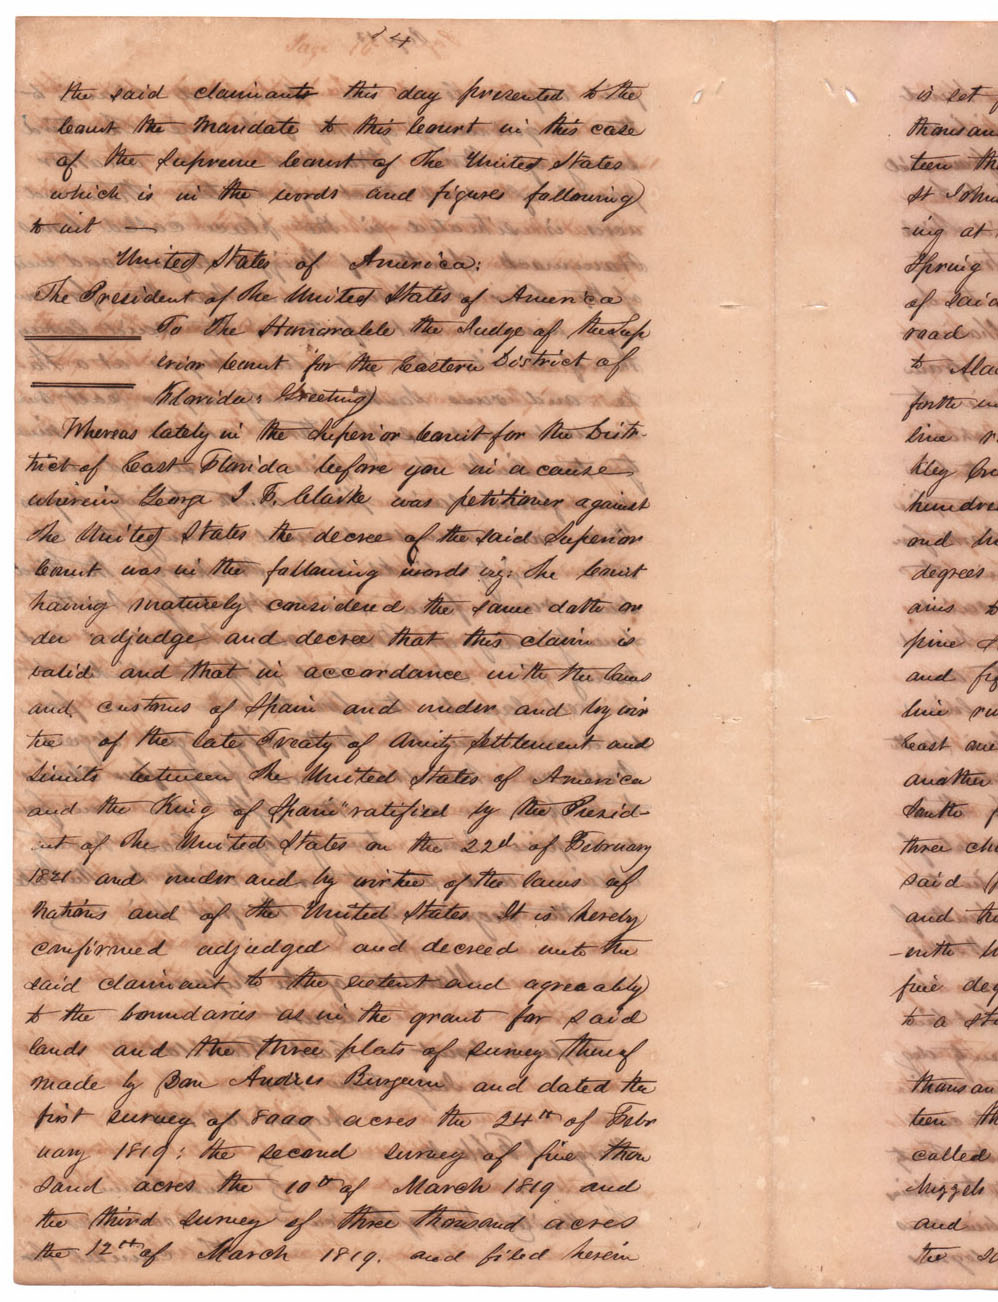 14
the said claimants this day presented to the
Court the Mandate to this Court in this case
of the Supreme Court of The United States
which is in the words and figures following
to wit —
United States of America:
The President of the United States of America
To The Honorable the Judge of the Sup
erior Court for the Eastern District of
Florida: Greeting
Whereas lately in the Superior Court for the Dist-
trict of East Florida before you in a cause
wherein George I. F. Clarke was petitioner against
the United States the decree of the said Superior
Court was in the following words viz: the Court
having maturely considered the same doth or
der adjudge and decree that this claim is
valid and that in accordance with the laws
and customs of Spain and under and by vir
tue of the late Treaty of Amity Settlement and
Limits between the United States of America
and the King of Spain "ratified by the Presid-
ent of the United States on the 22d of February
1821 and under and by virtue of the laws of
Nations and of the United States It is hereby
confirmed adjudged and decreed unto the
said claimant to the extent and agreeably
to the boundaries as in the grant for said
lands and the three plats of survey thereof
made by Don Andres Burgevin and dated the
first survey of 8000 acres the 24th of Febr
uary 1819; the second survey of five thou
sand acres the 10th of March 1819 and
the third survey of three thousand acres
the 12th of March 1819. and filed herein
is set
thousan
teen th
St John
-ing at
Spring
of said
road
to Ala
forth
line
kley
hundred
and
degrees
ains
pine
and
line
East one
another
South
three ch
said
and the
-enth
five deg
to a sta
thousan
teen th
called
and
the